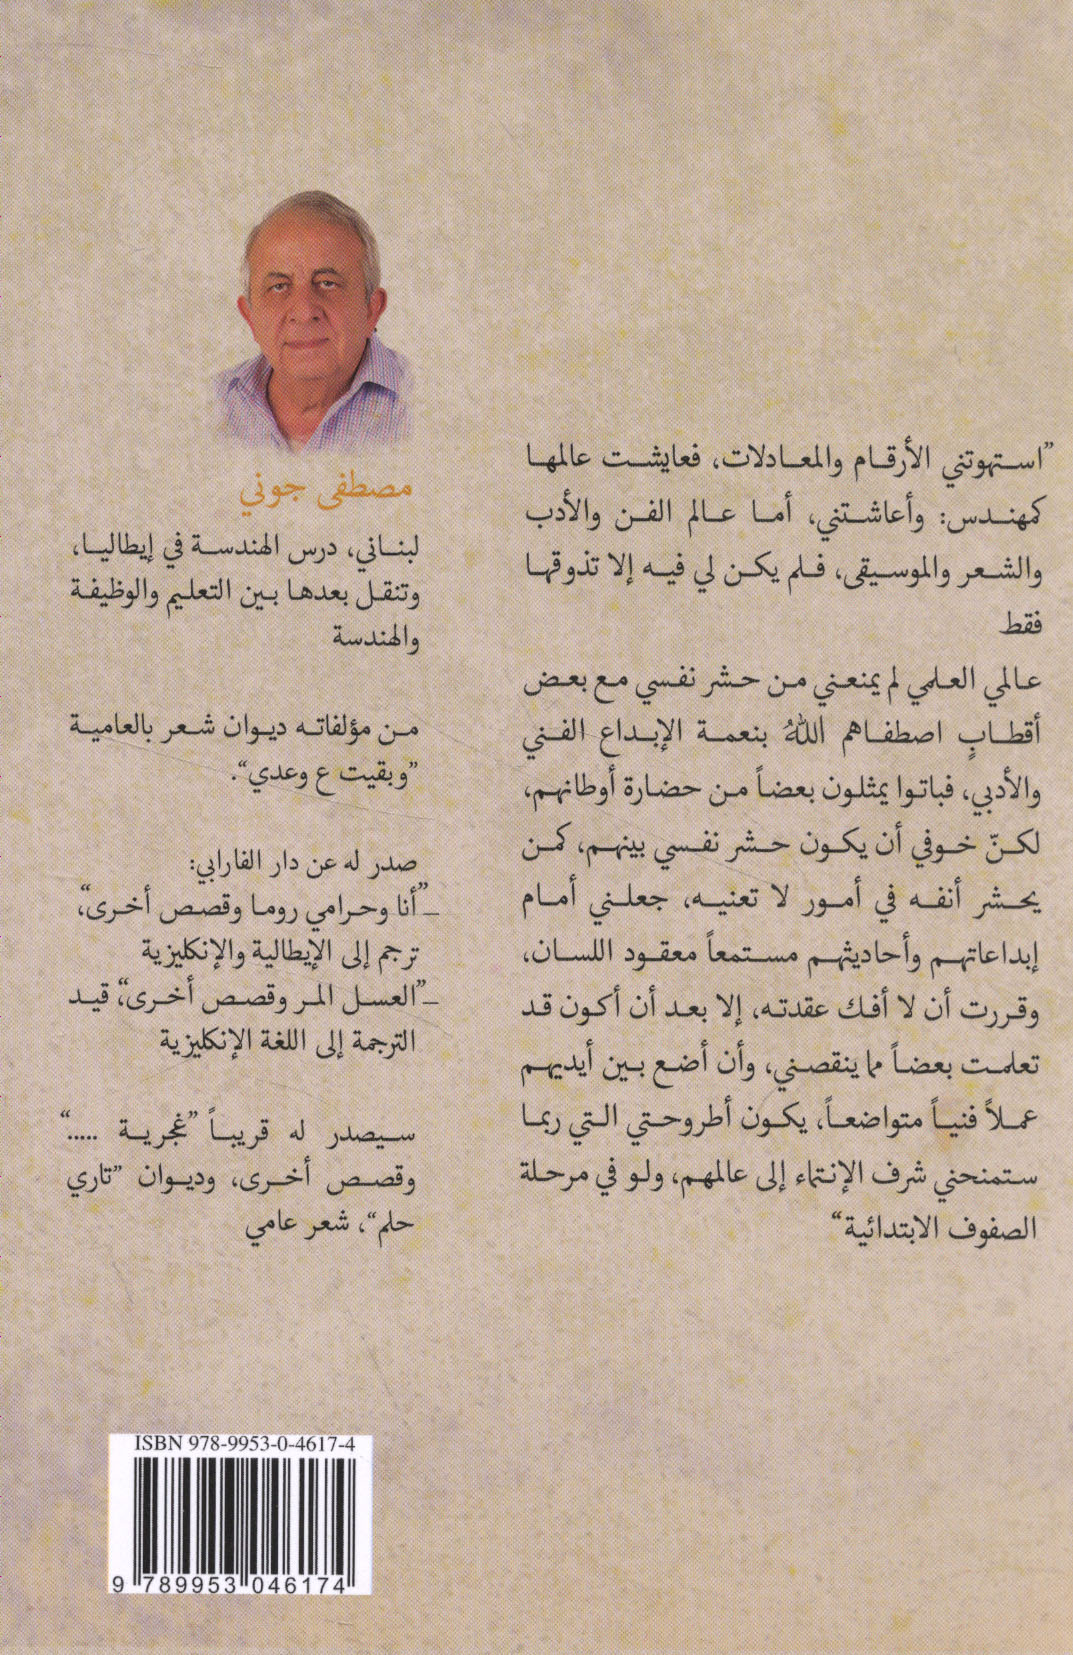 ”استهوتني الأرقام والمعادلات، فعايشت عالمها
كمهندس: وأعاشتني، أما عالم الفن والأدب
والشعر والموسيقى، فلم يكن لي فيه إلا تذوقها
فقط
عالمي العلمي لم يمنعني من حشر نفسي مع بعض
أقطابٍ اصطفاهم اللهُ بنعمة الإبداع الفني
والأدبي، فباتوا يمثلون بعضاً من حضارة أوطانهم،
لكنّ خوفي أن يكون حشر نفسي بينهم، كمن
يحشر أنفه في أمور لا تعنيه، جعلني أمام
إبداعاتهم وأحاديثهم مستمعاً معقود اللسان،
وقررت أن لا أفك عقدته، إلا بعد أن أكون قد
تعلمت بعضاً مما ينقصني، وأن أضع بين أيديهم
عملاً فنياً متواضعاً، يكون أطروحتي التي ربما
ستمنحني شرف الإنتماء إلى عالمهم، ولو في مرحلة
الصفوف الابتدائية“
مصطفى جوني
لبناني، درس الهندسة في إيطاليا،
وتنقل بعدها بين التعليم والوظيفة
والهندسة
من مؤلفاته ديوان شعر بالعامية
”وبقيت ع وعدي“.
صدر له عن دار الفارابي:
_”أنا وحرامي روما وقصص أخرى“،
ترجم إلى الإيطالية والإنكليزية
_”العسل المر وقصص أخرى“، قيد
الترجمة إلى اللغة الإنكليزية
سيصدر له قريباً ”غجرية .....“
وقصص أخرى، وديوان ”تاري
حلم“، شعر عامي
ISBN 978-9953-0-4617-4
9 789953 046174